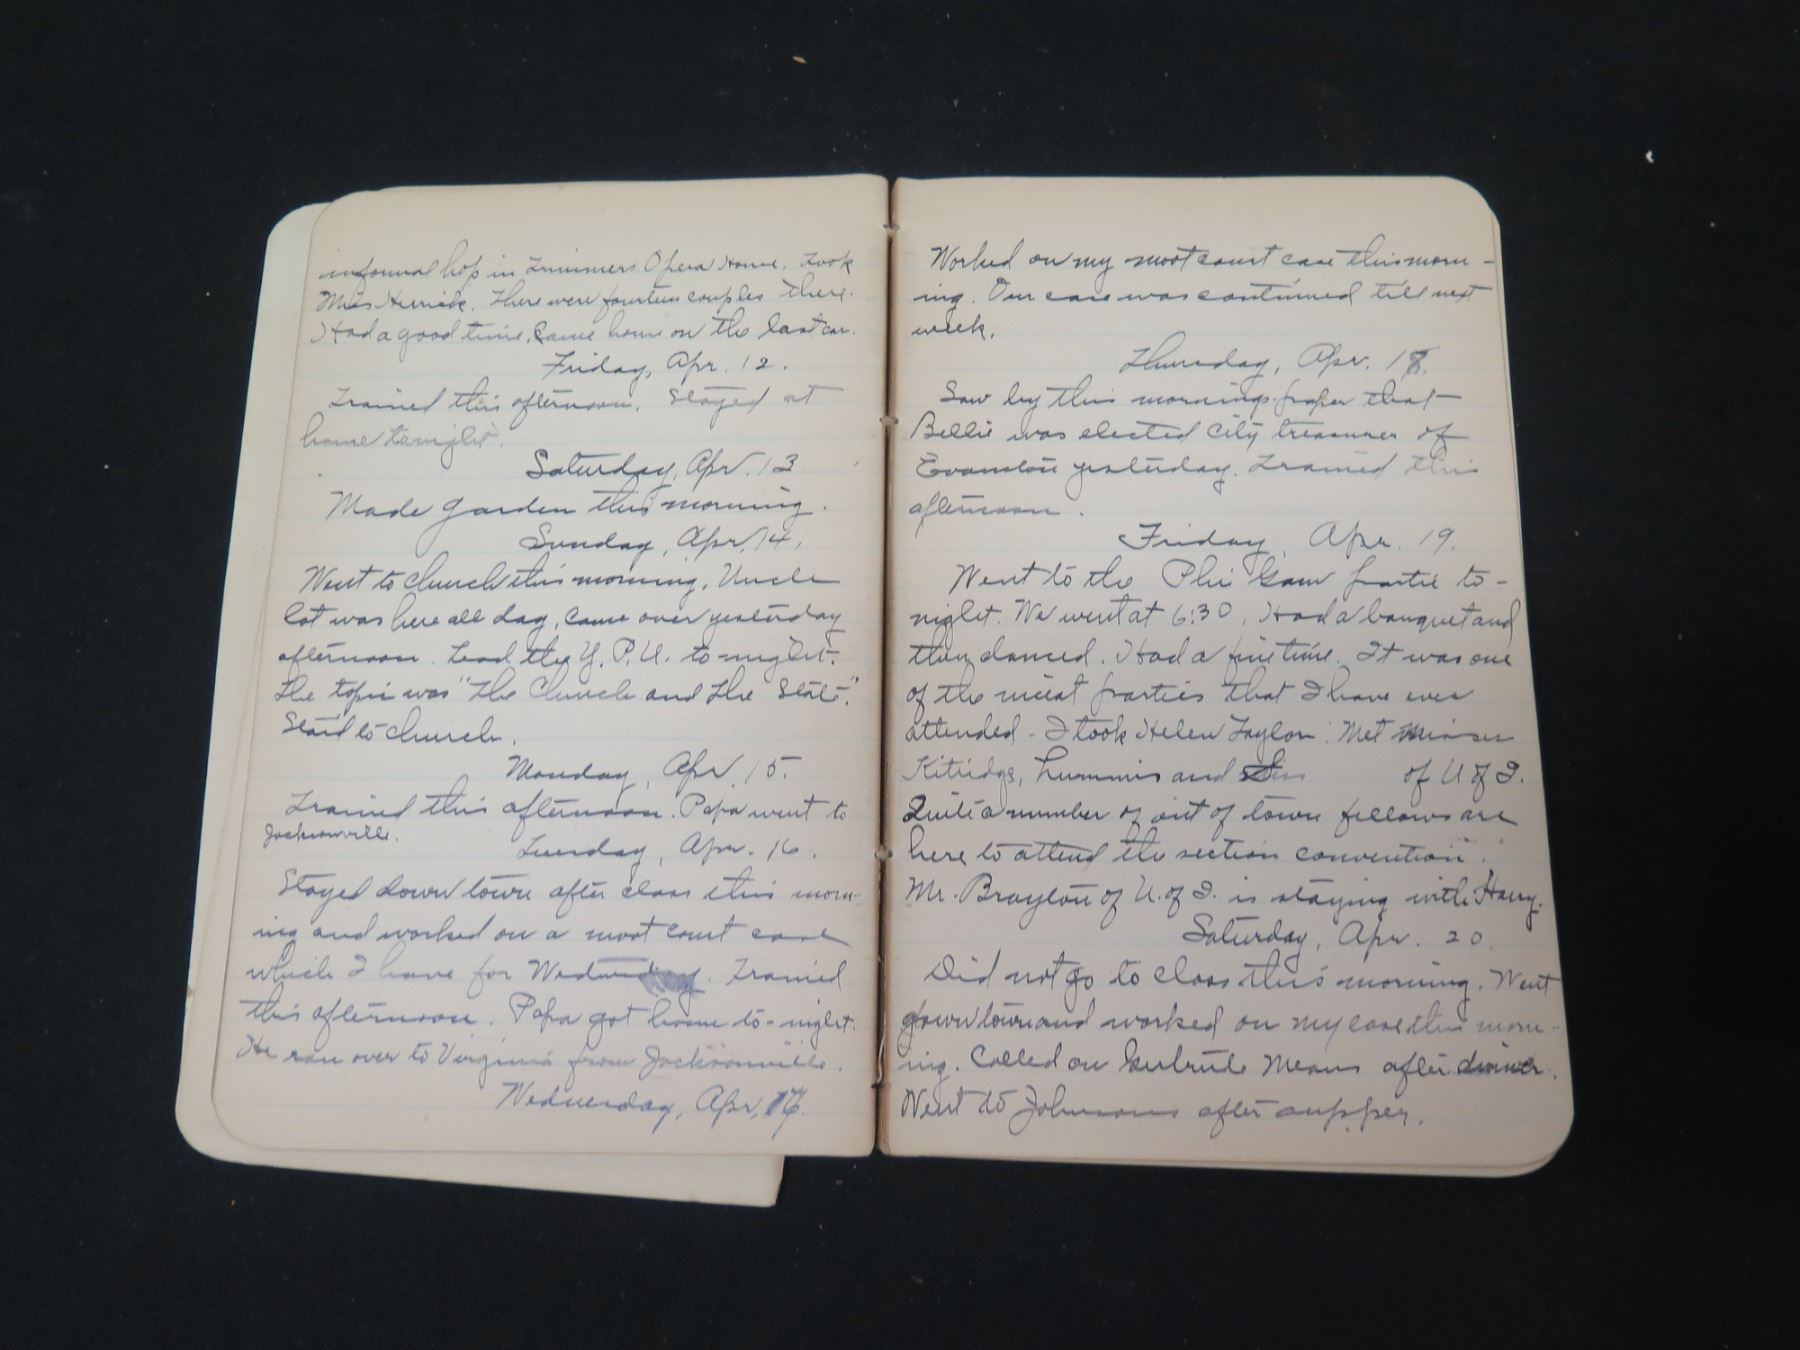 informal hop in Trimmers Opera House. Took
Miss Herrick. There were fourteen couples there.
Had a good time. Came home on the last car.
Friday, Apr. 12.
Trained this afternoon. Stayed at
home tonight.
Saturday, Apr. 13
Made garden this morning.
Sunday, Apr. 14.
Went to church this morning. Uncle
Lot was here all day, came over yesterday
afternoon. Lead the Y. P. U. to-night.
The topic was "The Church and the State."
Staid to church.
Monday, Apr. 15.
Trained this afternoon. Papa went to
Jacksonville.
Tuesday, Apr. 16.
Stayed down town after class this morn-
ing and worked on a moot court case
which I have for Wednesday. Trained
this afternoon. Papa got home to-night.
He ran over to Virginia from Jacksonville.
Wednesday, Apr. 17.
Worked on my moot court case this morn-
ing. Our case was continued till next
week.
Thursday, Apr. 18.
Saw by this mornings paper that
Billie was elected city treasurer of
Evanston yesterday. Trained this
afternoon.
Friday, Apr. 19.
Went to the Phi Gam partie to-
night. We went at 6:30. Had a banquet and
then danced. Had a fine time. It was one
of the nicest parties that I have ever
attended - I took Helen Taylor. Met Misses
Kitridge, Lummis and of U of I.
Quite a number of out of town fellows are
here to attend the section convention.
Mr. Brayton of U. of I. is staying with Harry.
Saturday, Apr. 20.
Did not go to class this morning. Went
down town and worked on my case this morn-
ing. Called on Gertrude Means after dinner.
Went to Johnsons after supper.